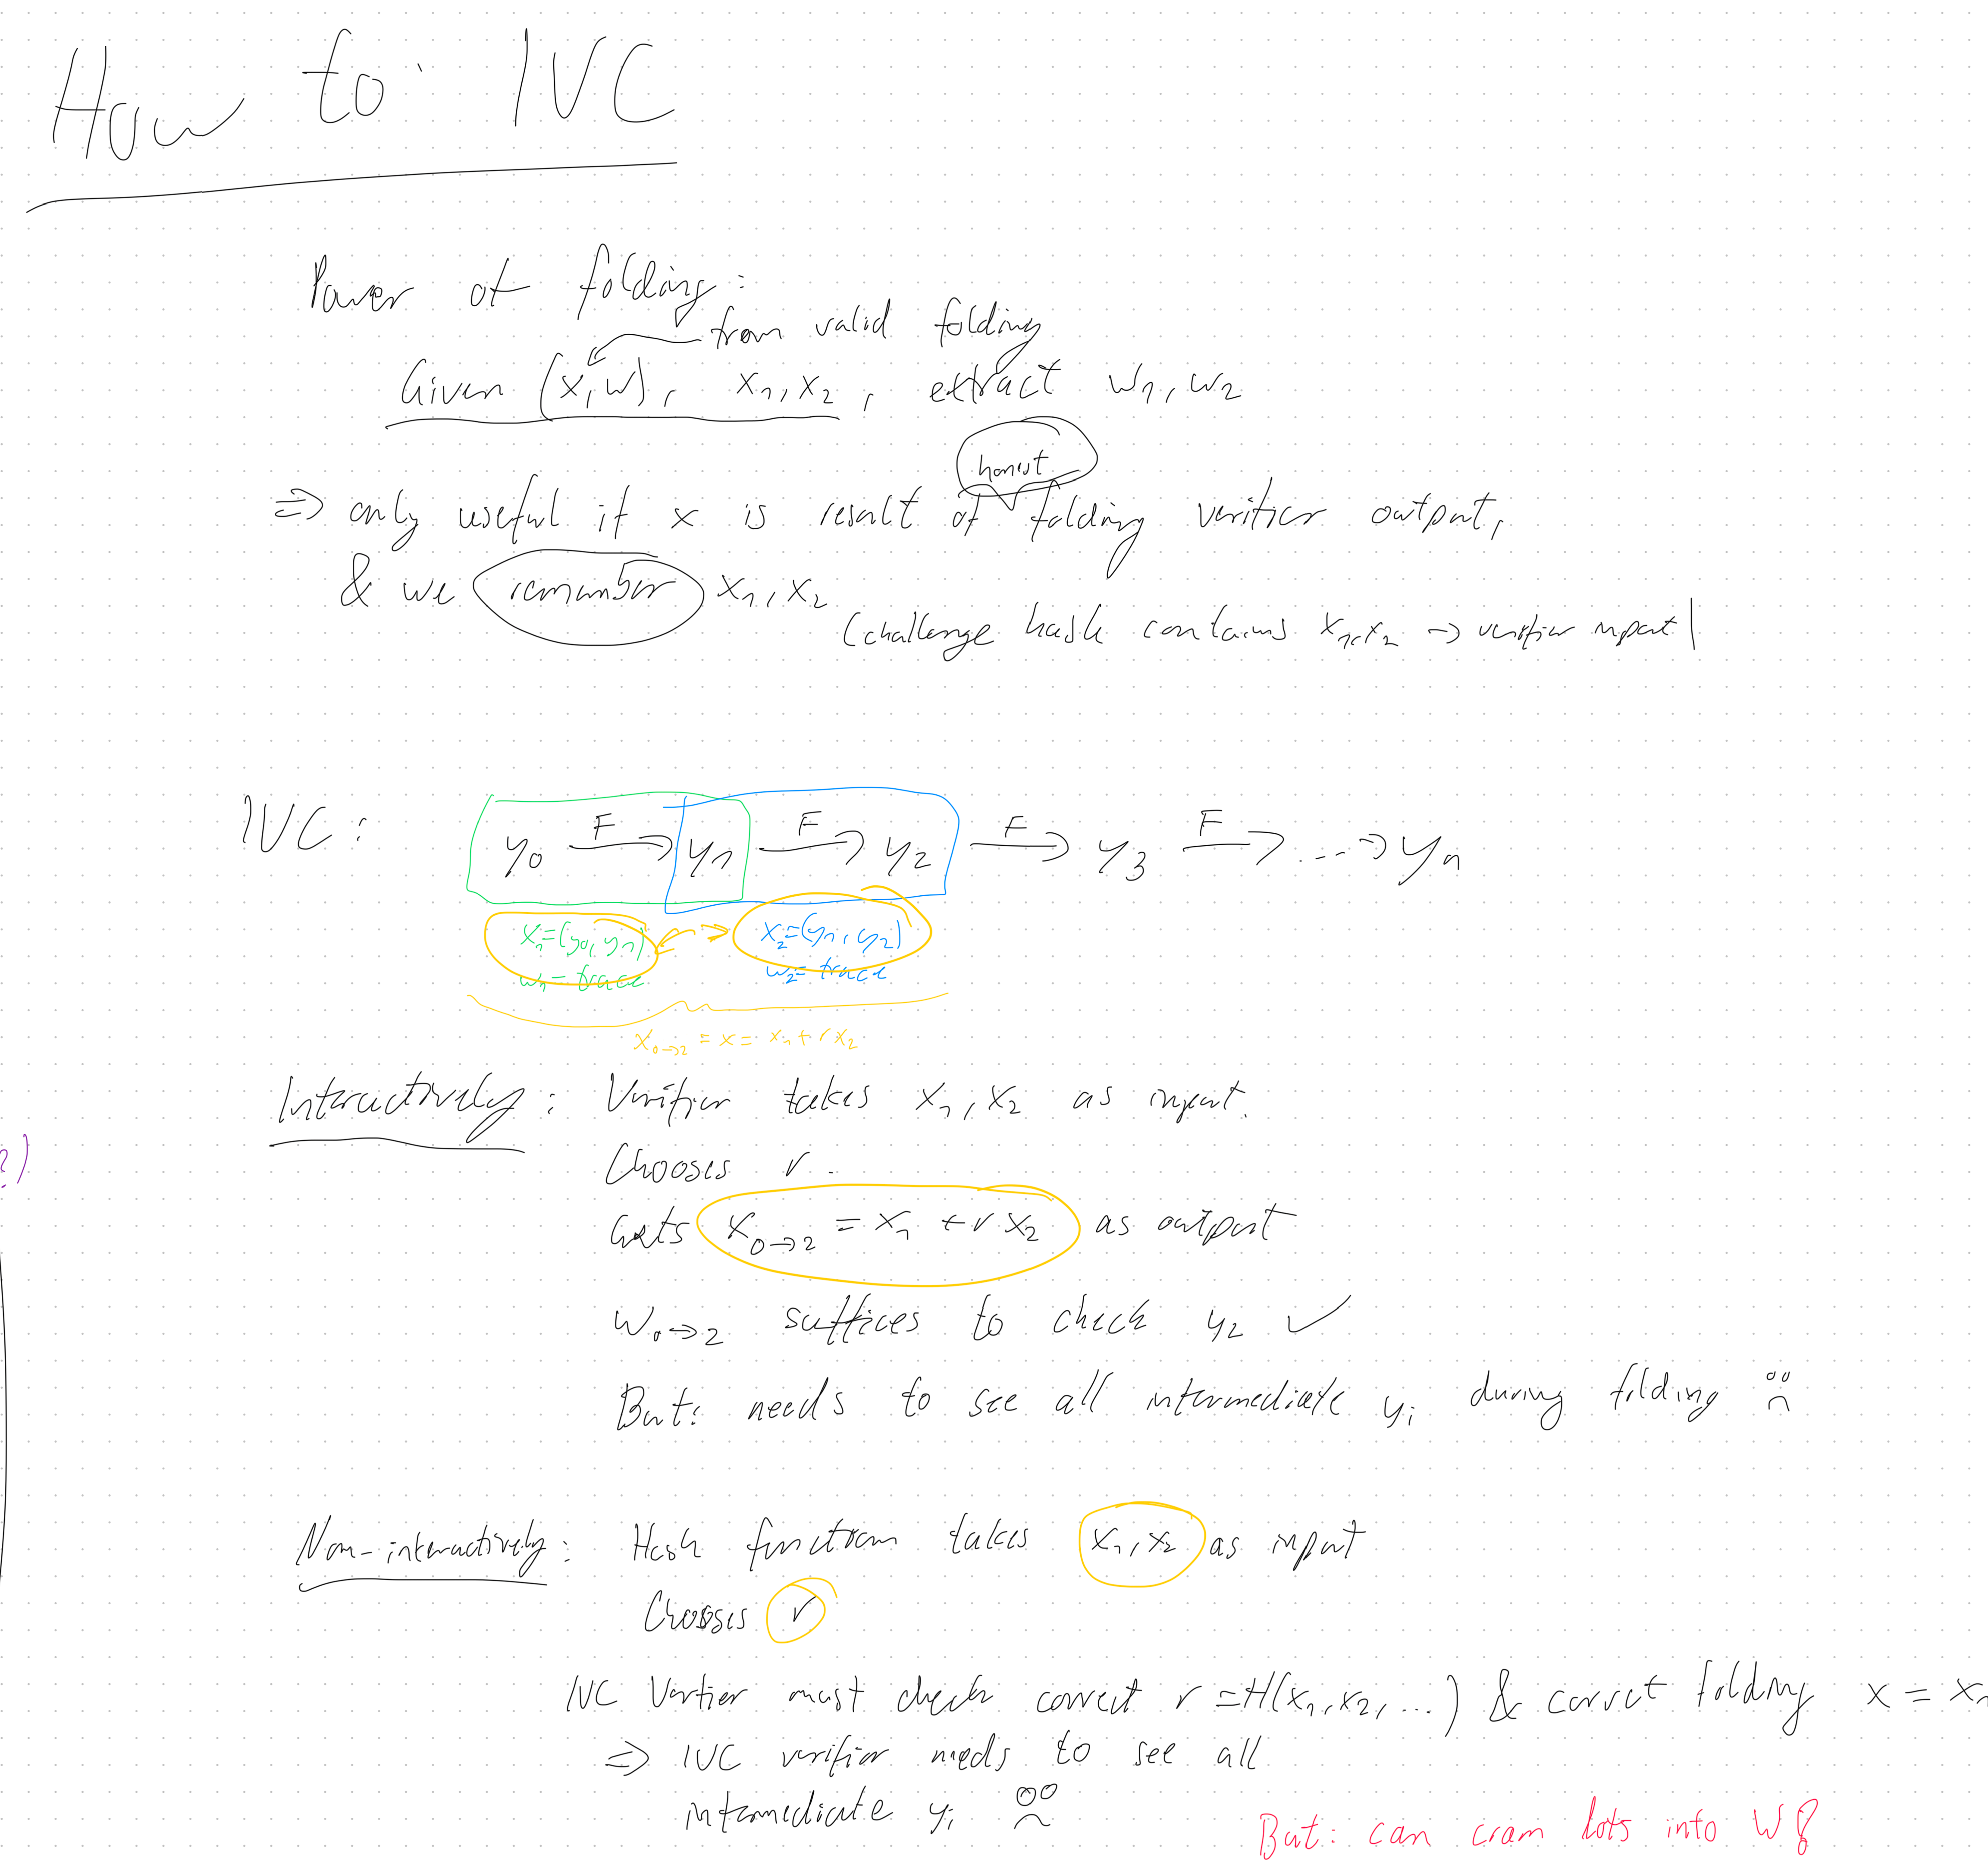 How to: IVC
Power of folding:
from valid folding
Given (x, w), x₁, x₂, extract w₁, w₂
honest
⇒ only useful if x is result of folding verifier output,
& we remember x₁, x₂
(challenge hash contains x₁, x₂ → verifier input)
IVC: y₀ →F y₁ →F y₂ →F y₃ →F ... → yₙ
x₁=(y₀, y₁) x₂=(y₁, y₂)
w₁= trace w₂= trace
x₀→₂ = x = x₁ + r x₂
Interactively: Verifier takes x₁, x₂ as input.
Chooses r.
?)
Gets x₀→₂ = x₁ + r x₂ as output
w₀→₂ suffices to check y₂ ✓
But: needs to see all intermediate yᵢ during folding
Non-interactively: Hash function takes x₁, x₂ as input
Chooses r
IVC Verifier must check correct r = H(x₁, x₂, ...) & correct folding x = x₁
⇒ IVC verifier needs to see all
intermediate yᵢ
But: can cram lots into w!